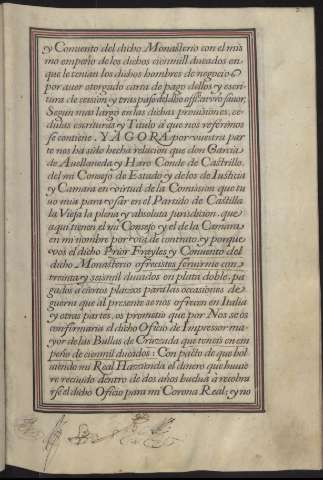 y Convento del dicho Monasterio con el mis
mo empeño de los dichos cien mill ducados en
que le tenian los dichos hombres de negocio
por auer otorgado carta de pago dellos y escri
tura de cession y traspaso del dho officio en vro fauor,
Segun mas largo en las dichas prouisiones, ce
dulas escrituras y Titulo à que nos referimos
se contiene. YAGORA por vuestra par
te nos ha sido hecha relacion que don Garcia
de Auellaneda y Haro Conde de Castrillo,
del mi Consejo de Estado y de los de Iusticia
y Camara en virtud de la Comission que tu
uo mia para vsar en el Partido de Castilla
la Vieja la plena y absoluta jurisdicion, que
aqui tienen el mi Consejo y el de la Camara
en mi nombre por via de contrato, y porque
vos el dicho Prior Frayles y Conuento del
dicho Monasterio ofrecistes seruirnos con
treinta y seis mil ducados en plata doble, pa
gados a ciertos plazos para las occasiones de
guerra que al presente se nos ofrecen en Italia
y otras partes, os prometio que por Nos se òs
confirmaria el dicho Oficio de Impressor ma
yor de las Bullas de Cruzada que teneis en em
peño de cien mil ducados: Con pacto de que bol
uiendo mi Real Hazienda el dinero que huuie
re reciuido dentro de dos años buelua à recobra
rse el dicho Oficio para mi Corona Real, y no